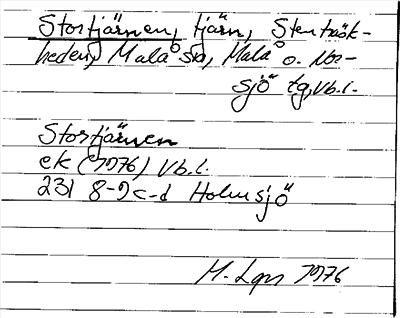 Stortjärnen, tjärn, Stenträsk-
heden, Malå sn, Malå o. Nor-
sjö tg, Vb.l.
Stortjärnen
ek (1976) Vb.l.
231 8-9 c-d Holmsjö
M. Lgn 1976